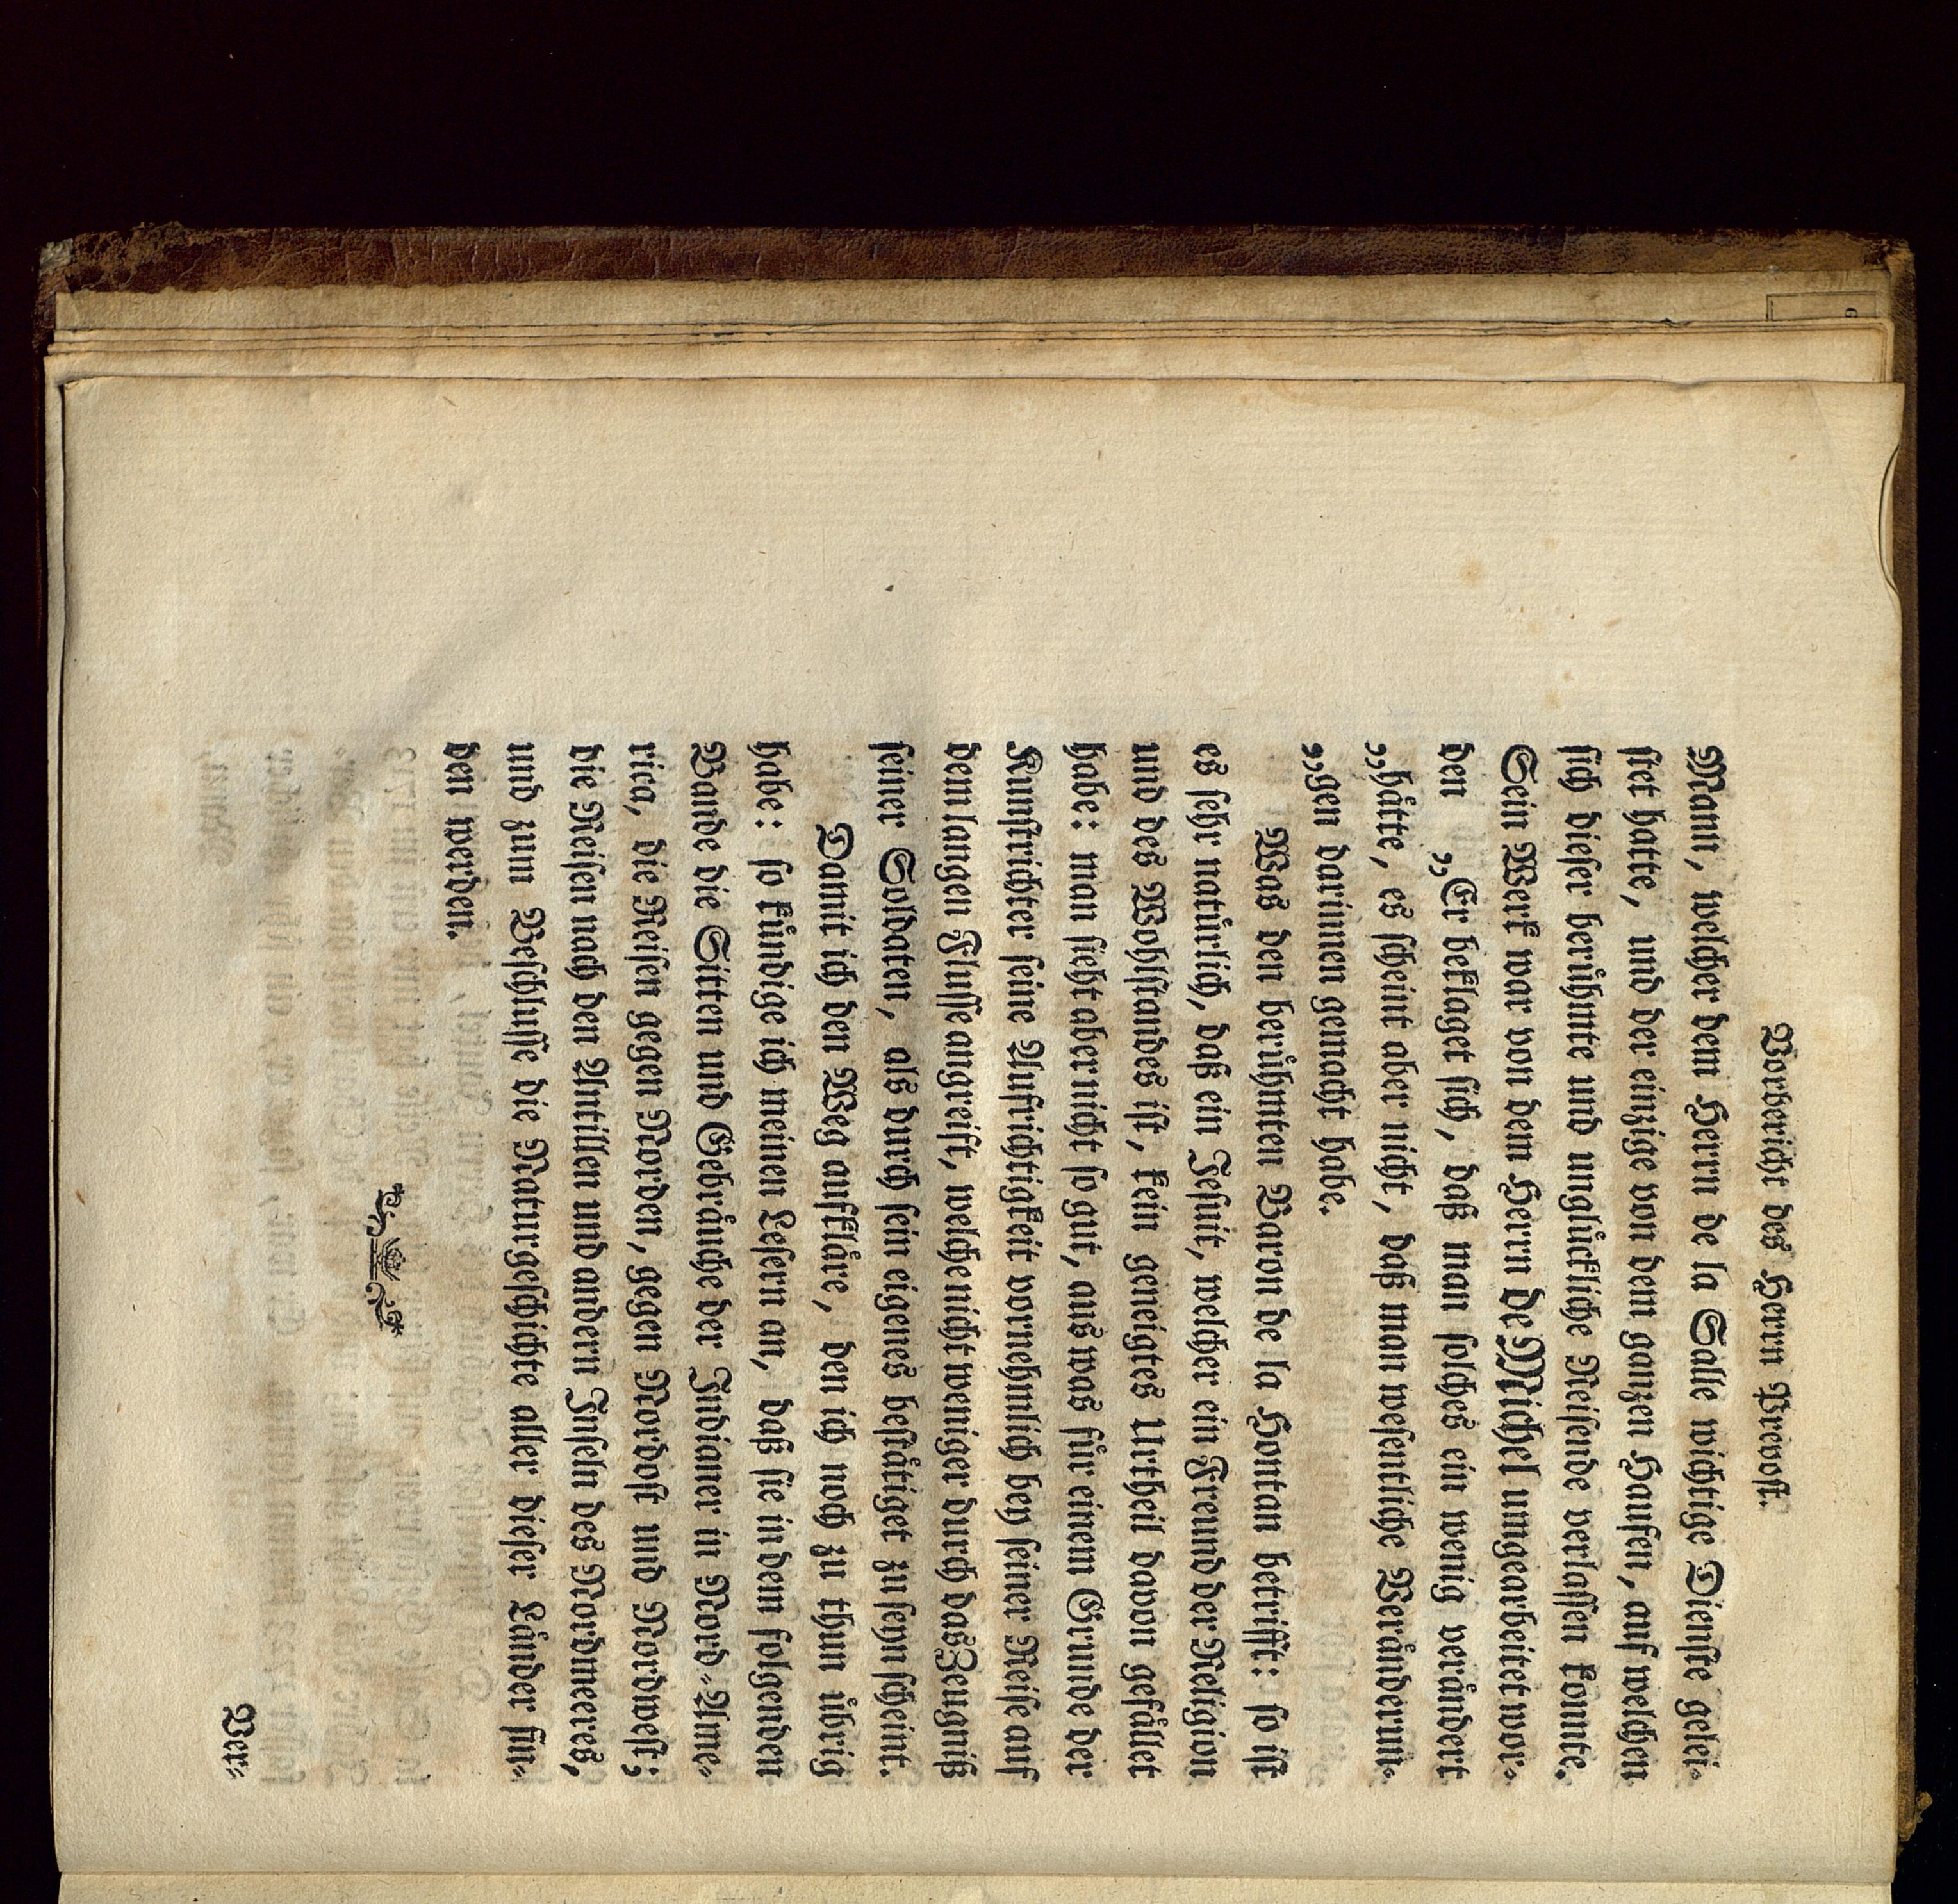 Vorbericht des Herrn Prevost.
Mann, welcher dem Herrn de la Salle wichtige Dienste gelei-
stet hatte, und der einzige von dem ganzen Haufen, auf welchen
sich dieser berühmte und unglückliche Reisende verlassen konnte.
Sein Werk war von dem Herrn de Michel umgearbeitet wor-
den „Er beklaget sich, daß man solches ein wenig verändert
„hätte, es scheint aber nicht, daß man wesentliche Veränderun-
„gen darinnen gemacht habe.
Was den berühmten Baron de la Hontan betrifft: so ist
es sehr natürlich, daß ein Jesuit, welcher ein Freund der Religion
und des Wohlstandes ist, kein geneigtes Urtheil davon gefället
habe: man sieht aber nicht so gut, aus was für einem Grunde der
Kunstrichter seine Aufrichtigkeit vornehmlich bey seiner Reise auf
dem langen Flusse angreift, welche nicht weniger durch das Zeugniß
seiner Soldaten, als durch sein eigenes bestätiget zu seyn scheint.
Damit ich den Weg aufkläre, den ich noch zu thun übrig
habe: so kündige ich meinen Lesern an, daß sie in dem folgenden
Bande die Sitten und Gebräuche der Indianer in Nord-Ame-
rica, die Reisen gegen Norden, gegen Nordost und Nordwest;
die Reisen nach den Antillen und andern Inseln des Nordmeeres,
und zum Beschlusse die Naturgeschichte aller dieser Länder fin-
den werden.
Ver-